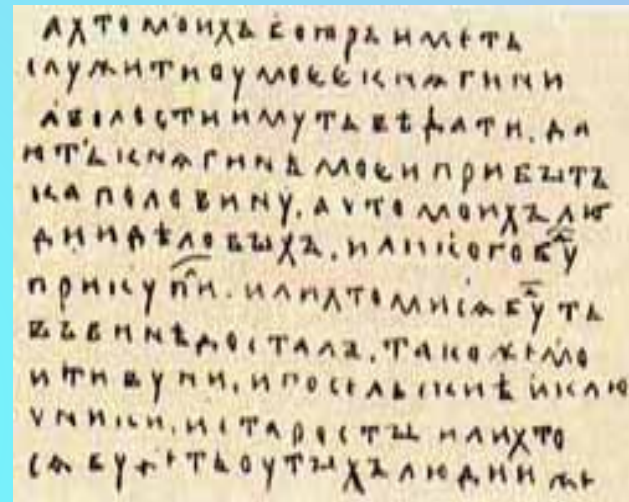 ахтомоихъ боꙗръ иметь
служитиоумоеекнѧгини
аволостиимутьвѣдати. да
ютькнѧгинѣмоеиприбытъ
каполовину. ачтомоихълю
диидѣловыхъ. иликогобуⷣ
прикупиⷧ. илихтомисѧбуⷣть
въвинѣдосталъ. такожемо
итивуни. ипосельскиѣиклю
чники. истаросты илихто
сѧбудетьоутыхълюдииже